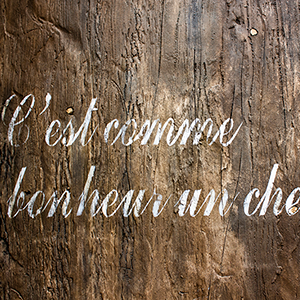 C'est comme
bonheur un che